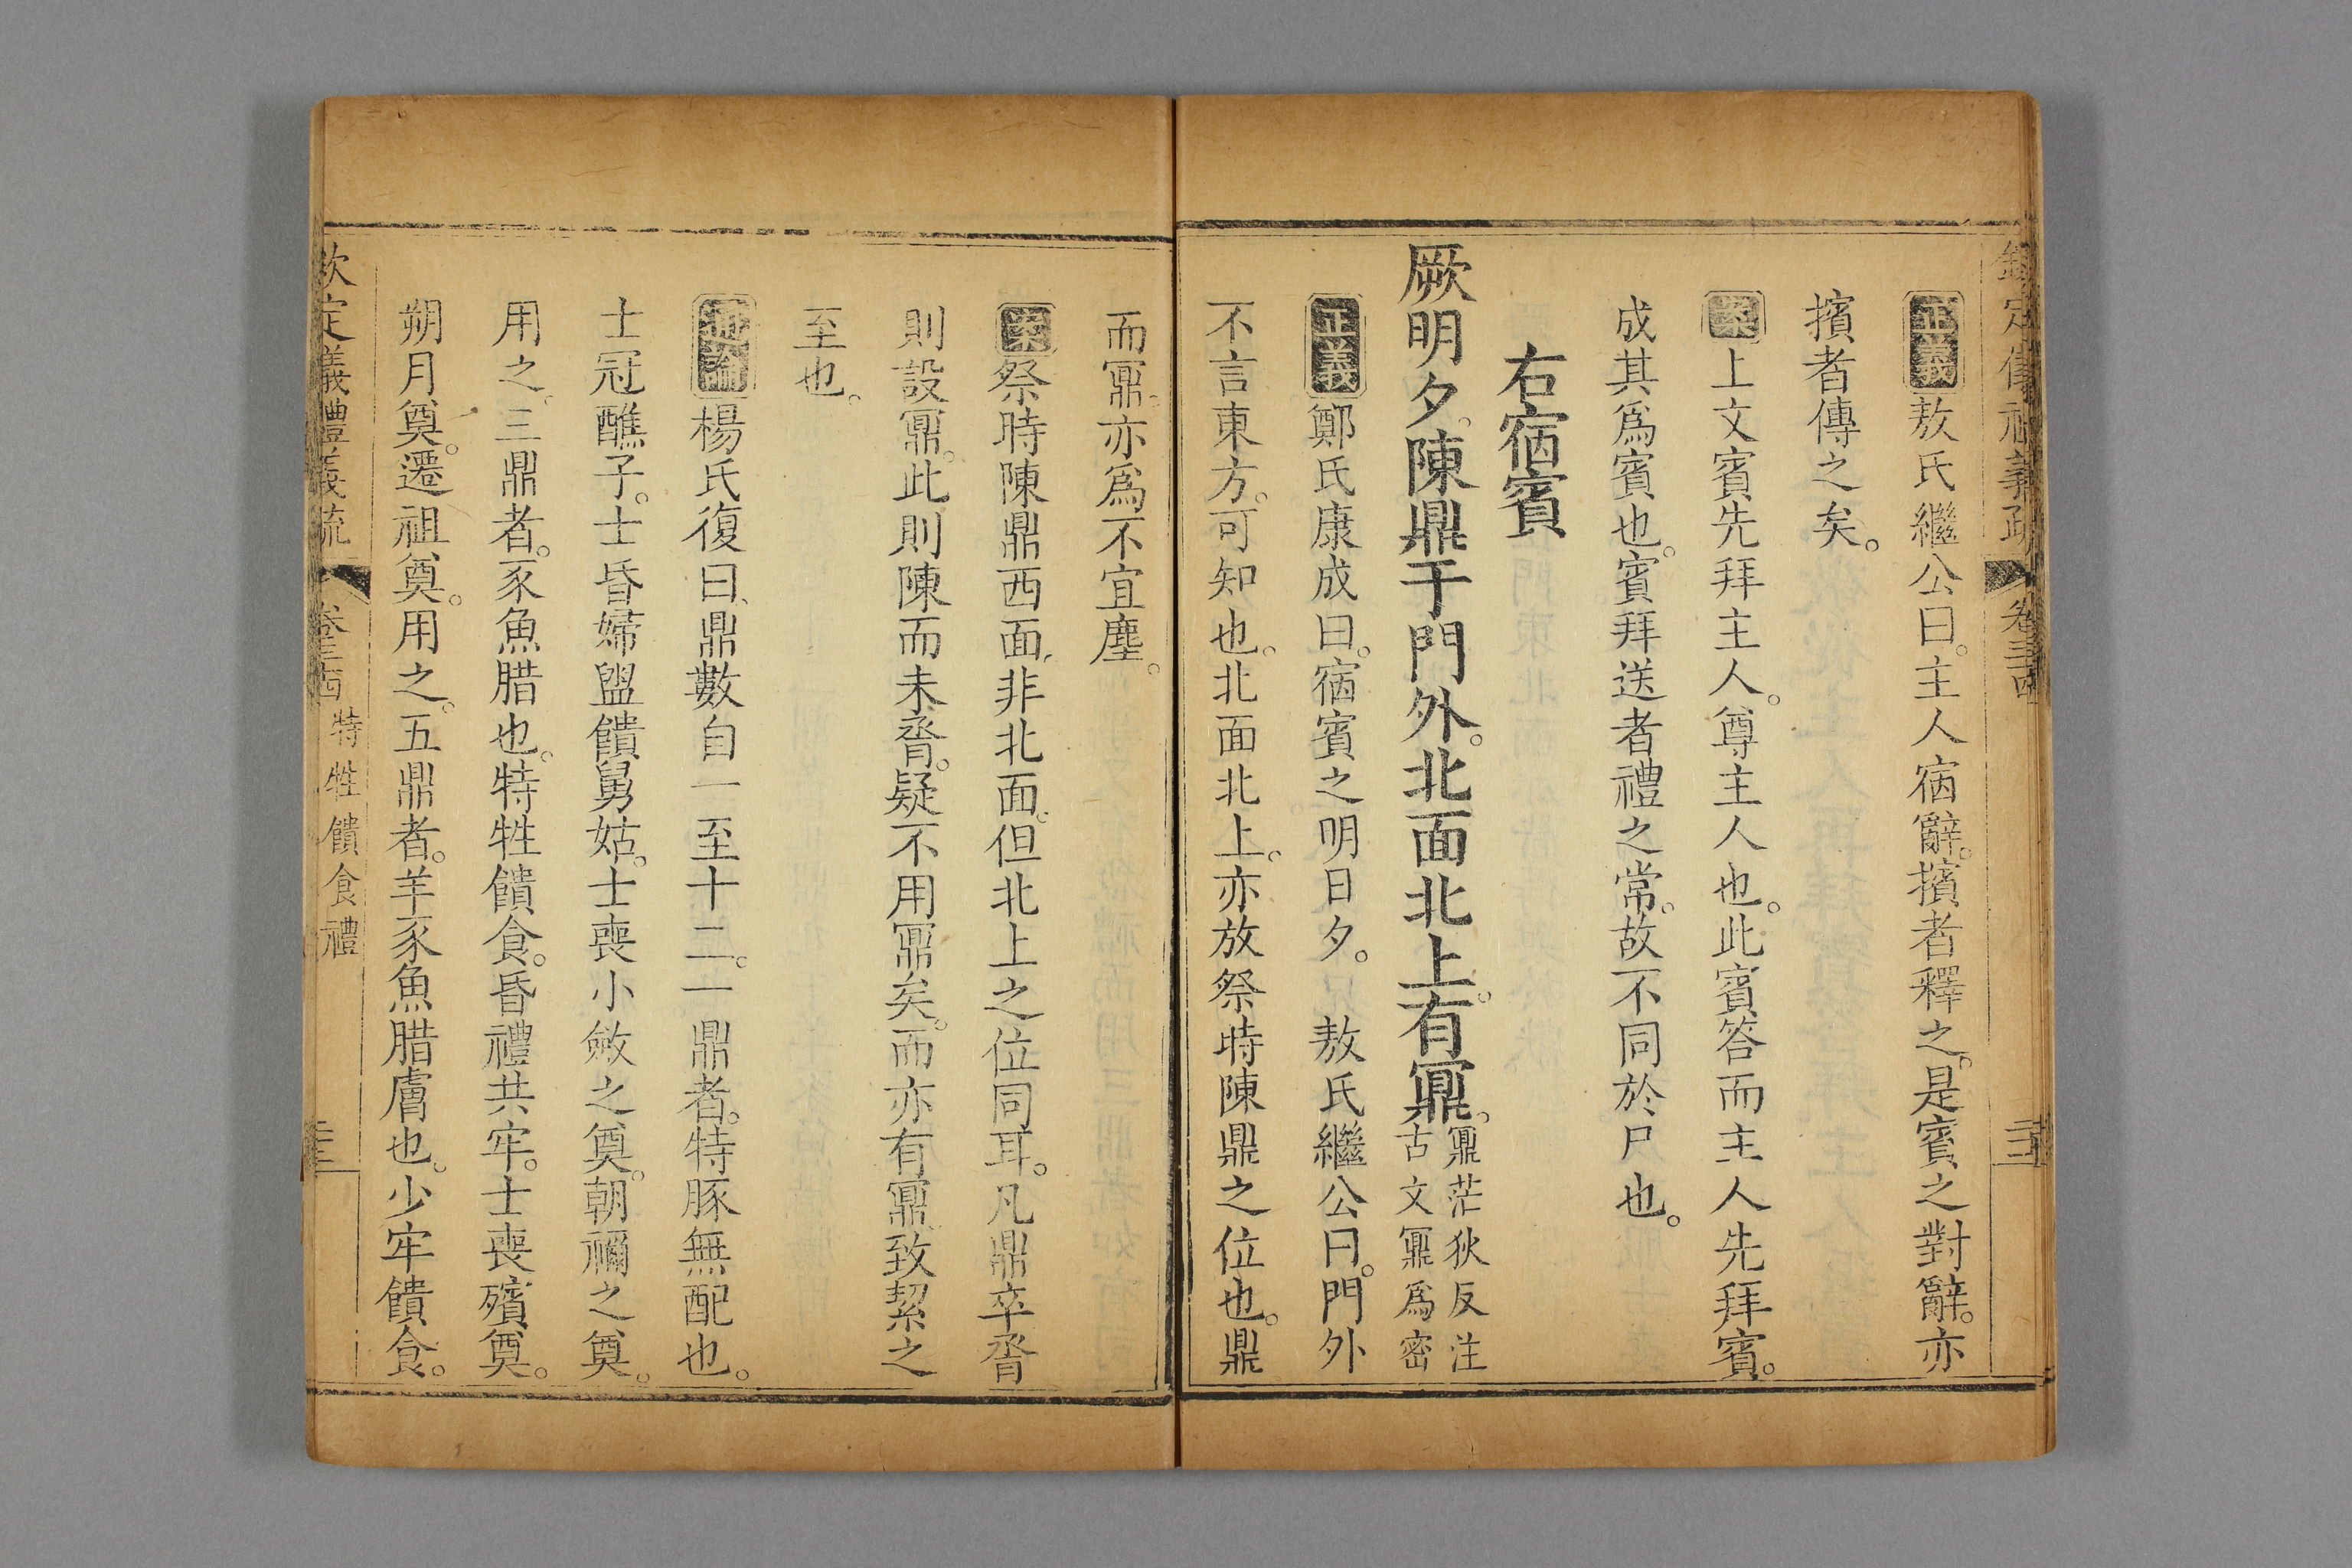 正義敖氏繼公曰。主人宿辭。擯者釋之。是賓之對辭。亦
擯者傳之矣。
案上文賓先拜主人。尊主人也。此賓答而主人先拜賓。
成其爲賓也。賓拜送者禮之常。故不同於尸也。
右宿賓
厥明夕。陳鼎于門外。北面北上。有鼏。
鼏茫狄反注
古文鼏爲密
正義鄭氏康成曰。宿賓之明日夕。敖氏繼公曰。門外
不言東方。可知也。北面北上。亦放祭時陳鼎之位也。鼎
而鼏。亦爲不宜塵。
案祭時陳鼎西面、非北面。但北上之位同耳。凡鼎卒脀
則設鼏。此則陳而未脀。疑不用鼏矣。而亦有鼏、致絜之
至也。
通論楊氏復曰、鼎數自一至十二。一鼎者。特豚無配也。
士冠醮子。士昏婦盥饋舅姑。士喪小斂之奠。朝禰之奠。
用之。三鼎者。豕魚腊也。特牲饋食。昏禮共牢。士喪殯奠。
朔月奠。遷祖奠。用之。五鼎者。羊豕魚腊膚也。少牢饋食。
欽定義禮義疏 卷三十四 特牲饋食禮